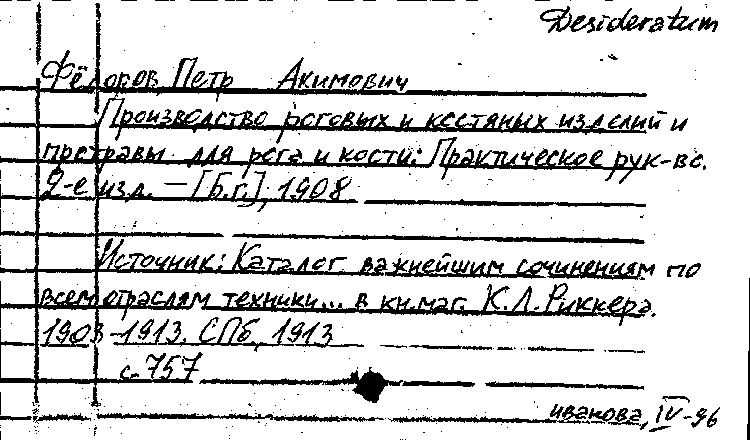 Desideratum
Фёдоров, Петр Акимович
Производство роговых и костяных изделий и
протравы для рога и кости: Практическое рук-во.
2-е изд. — [Б.г.], 1908
Источник: Каталог важнейшим сочинениям по
всем отраслям техники... в кн.маг. К.Л.Риккера.
1903-1913. СПб., 1913
с.757
иванова, IV-96